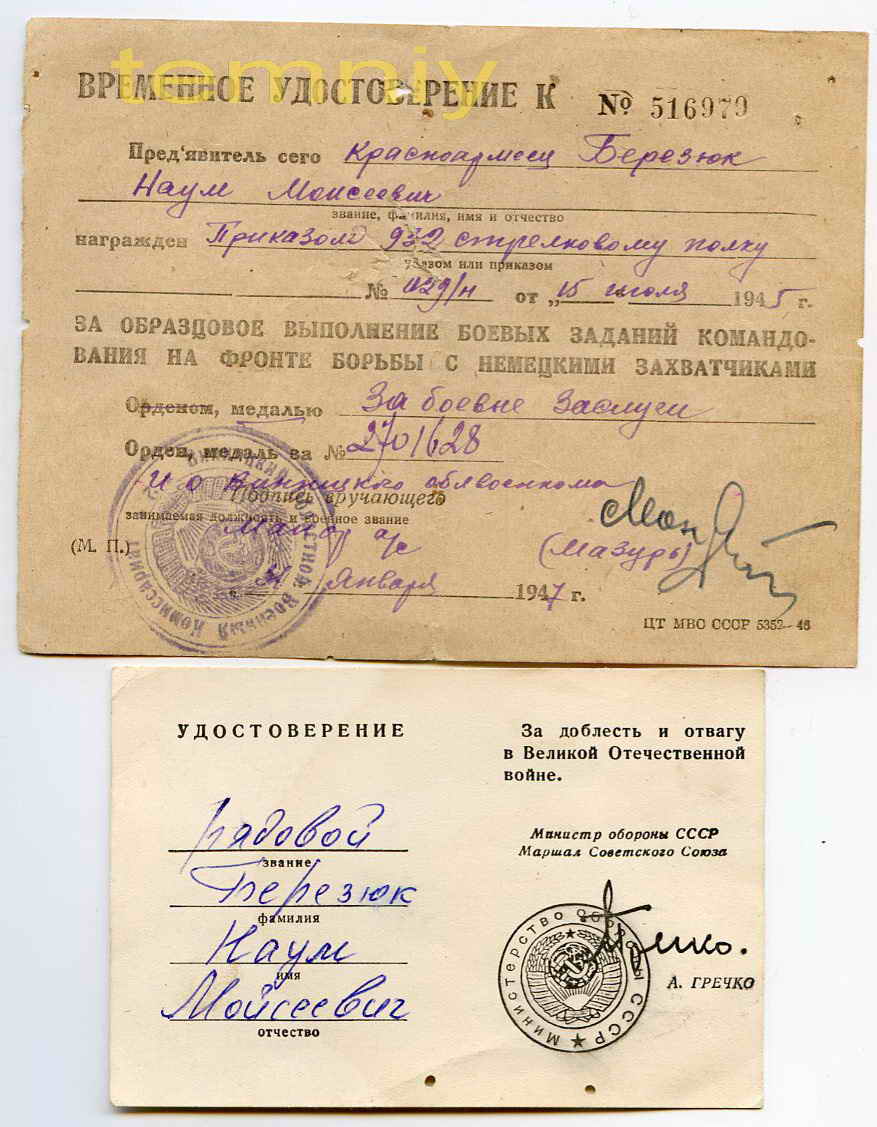 temniy
ВРЕМЕННОЕ УДОСТОВЕРЕНИЕ К № 516979
Пред'явитель сего Красноармеец Березюк
Наум Моисеевич
звание, фамилия, имя и отчество
награжден Приказом 932 стрелковому полку
указом или приказом
№ 029/н от „15 июля 1945 г.
ЗА ОБРАЗЦОВОЕ ВЫПОЛНЕНИЕ БОЕВЫХ ЗАДАНИЙ КОМАНДО-
ВАНИЯ НА ФРОНТЕ БОРЬБЫ С НЕМЕЦКИМИ ЗАХВАТЧИКАМИ
Орденом, медалью За боевые Заслуги
Орден, медаль за № 2701628
И о Винницкого облвоенкома
Подпись вручающего
занимаемая должность и военное звание
Майор а/с (Мазуры)
(М. П.)
Января 1947 г.
ЦТ МВС СССР 5352—46
Областной Военный Комиссариат
УДОСТОВЕРЕНИЕ
Рядовой
звание
Березюк
фамилия
Наум
имя
Мойсеевич
отчество
За доблесть и отвагу
в Великой Отечественной
войне.
Министр обороны СССР
Маршал Советского Союза
Министерство Обороны СССР
А. ГРЕЧКО